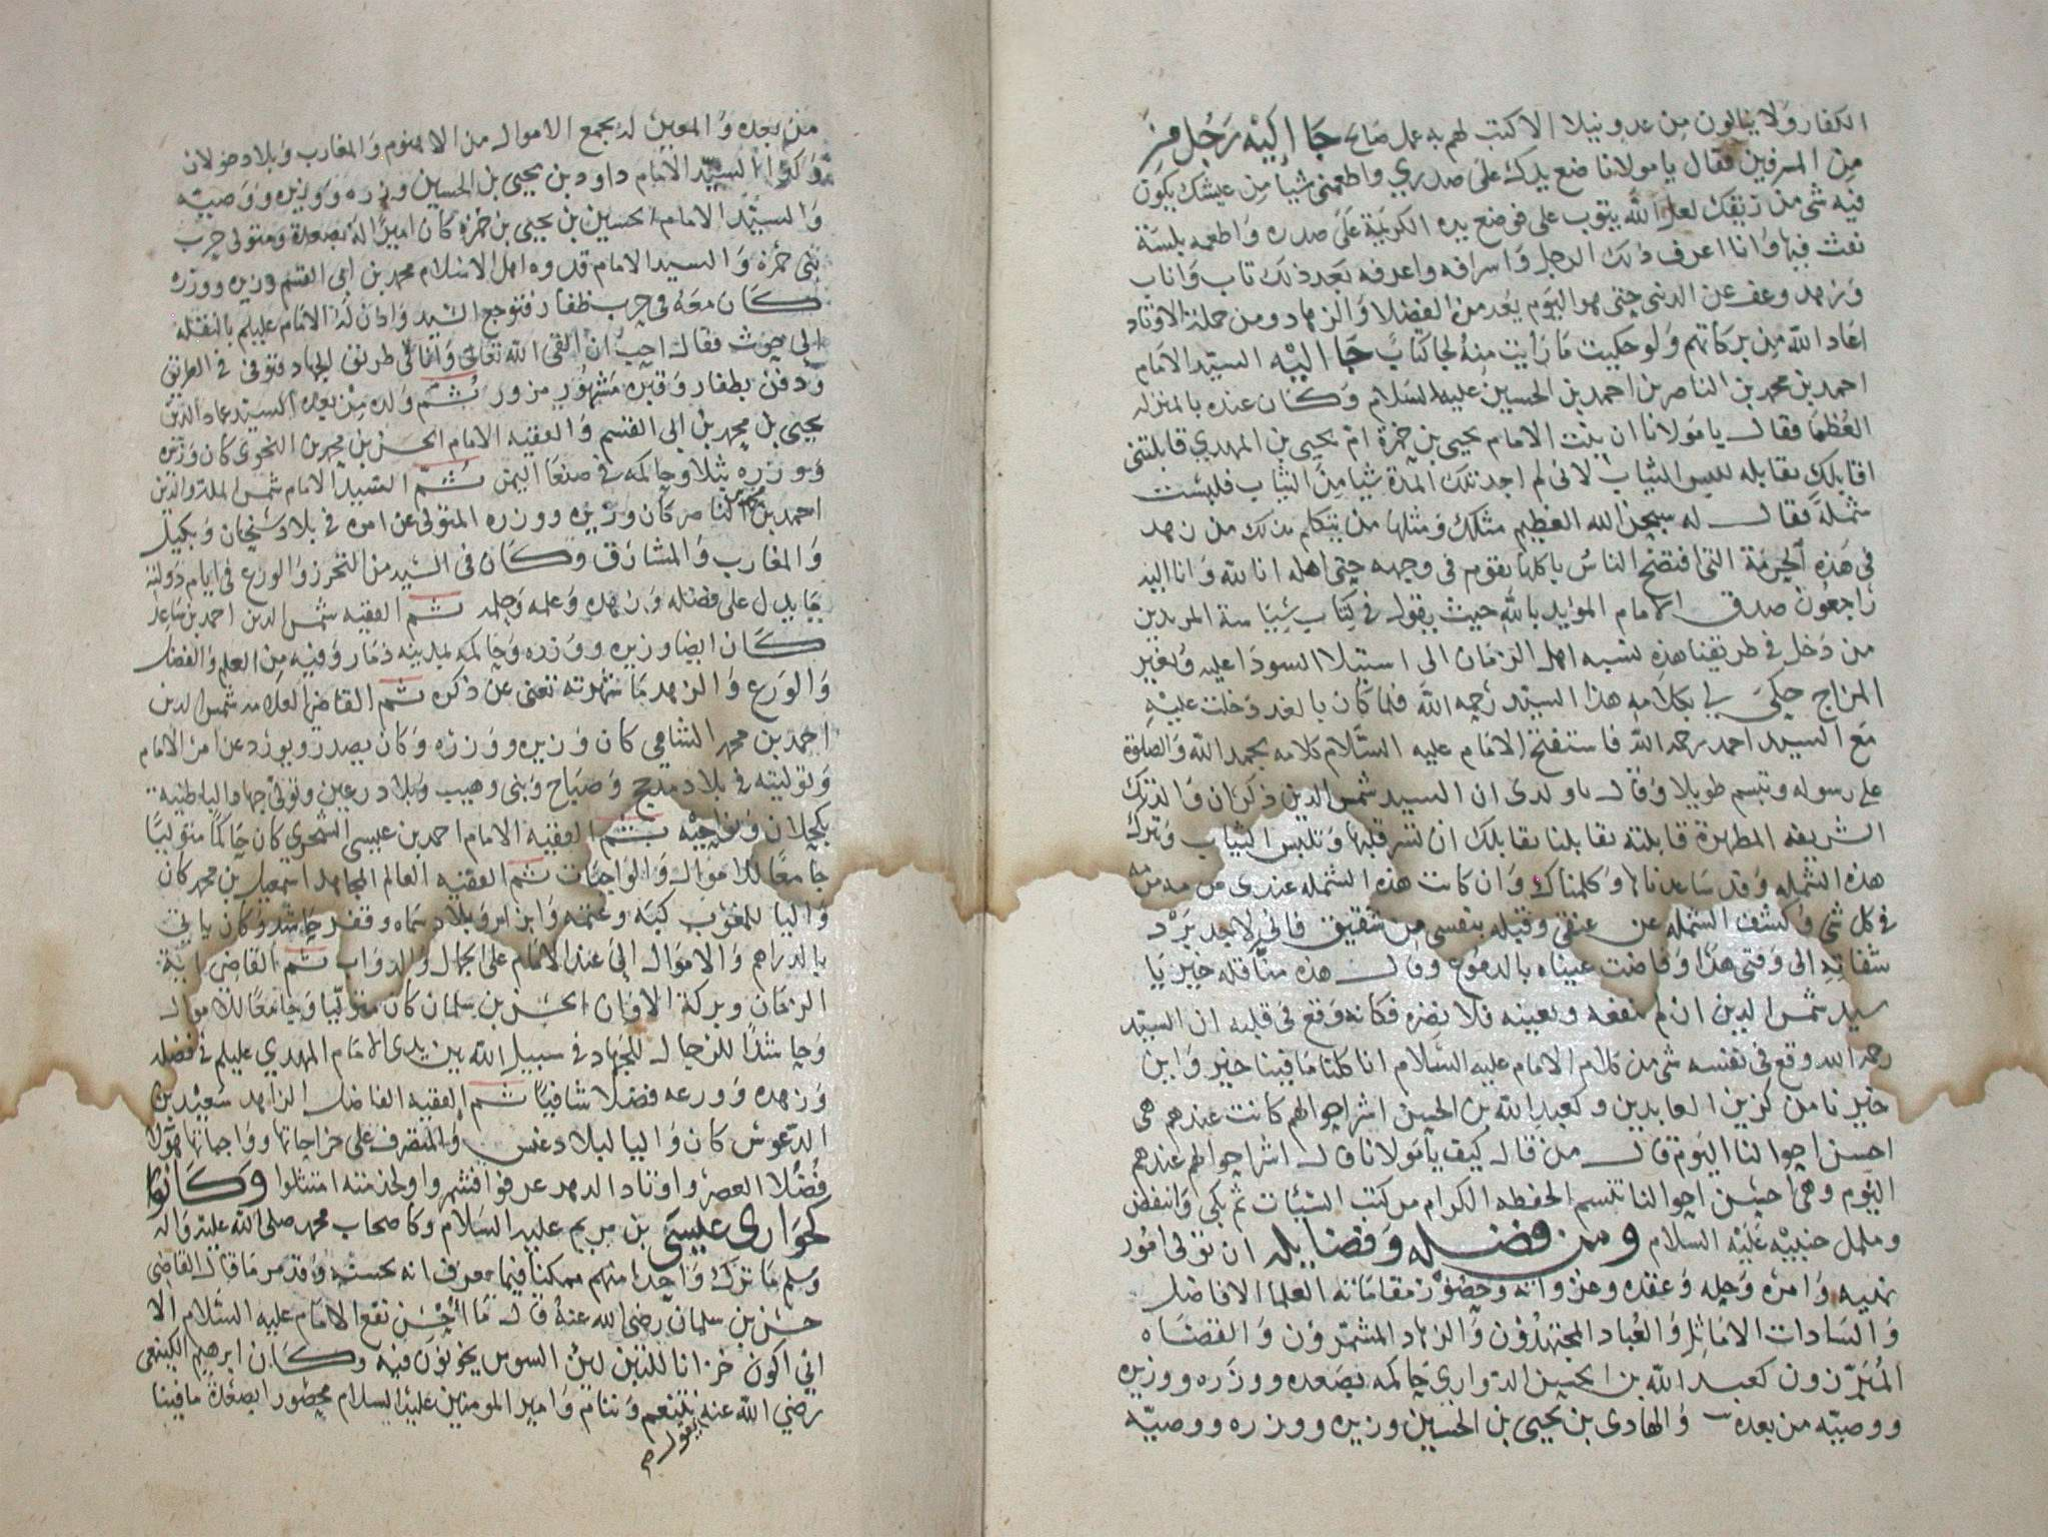 الكفار ولا ينالون من عدو نيلا الا كتب لهم به عمل صالح جا اليه رجل من
من المسرفين فقال يا مولانا ضع يدك على صدري واطعمني شيا من عيشك يكون
فيه شى من ريقك لعل الله يتوب على فوضع يده الكريمة على صدره واطعمه بلسنة
نفث فيها وانا اعرف ذلك الرجل واسرافه واعرفه بعد ذلك تاب واناب
وزهد وعف عن الدنى حتى هو اليوم يعد من الفضلا والزهاد ومن جملة الاوتاد
اعاد الله من بركاتهم ولو حكيت ما رايت منه لجا كتابا جا اليه السيد الامام
احمد بن محمد بن الناصر بن احمد بن الحسين عليه السلام وكان عنده بالمنزله
العظما فقال يا مولانا ان بنت الامام يحيى بن حمزة ام يحيى بن المهدي قابلتنى
اقابلك بقابله للبس الثياب لانى لم اجد تلك المدة شيا من الثياب فلبست
شملة فقال له سبحن الله العظيم مثلك ومثلها من يتكلم بذلك من زهد
فى هذه الحرمة التى افتضح الناس باكلها يقوم فى وجهه حتى اهله انا لله وانا اليه
راجعون صدق الامام المويد بالله حيث يقول فى كتاب سياسة المريدين
من دخل فى طريقنا هذه نسبه اهل الزمان الى استيلا السودا عليه وتغير
المزاج حكى لي بكلامه هذا السيد رحمه الله فلما كان بالغد دخلت عليه
مع السيد احمد رحمه الله فاستفتح الامام عليه السلام كلامه بحمد الله والصلوة
على رسوله وتبسم طويلا وقال يا ولدى ان السيد شمس الدين ذكر ان والدتك
الشريفه المطهرة قابلته بقابلنا بقابلك ان تسر قلبها وتلبس الثياب وتترك
هذه الشمله وقد ساعدناها وكلمناك وان كانت هذه الشمله عندى
فى كل شى وكشف الشمله عن عنقى وقبله بنفسى من شقيق فانى لاجد برد
شفاته الى وقتى هذا وفاضت عيناه بالدموع وقال هذه منا قله خير يا
سيد شمس الدين ان لم ننفعه ونعينه فلا نضره فكانه وقع فى قلبه ان السيد
رحمه الله وقع فى نفسه شى من كلام الامام عليه السلام انا كلنا ما فينا خير واين
خيرنا من كزين العابدين وكعبد الله بن الحسين اشر احوالهم كانت عندهم هى
احسن احوالنا اليوم قال من قال كيف يا مولانا قال اشر احوالهم عندهم
النوم وهى احسن احوالنا تسم الحفظه الكرام من كتب السيئات ثم بكى وانتفض
وململ جنبيه عليه السلام ومن فضله وفضايله ان تولى امور
نهيه وامره وحله وعقده وعزواته وحضور مقاماته العلما الافاضل
والسادات الاماثل والعباد المجتهدون والزهاد المشمرون والقضاه
المبرزون كعبد الله بن الحسين الدواري حاكمه بصعده ووزره ووزيره
ووصيه من بعده والهادى بن يحيى بن الحسين وزيره ووزره ووصيه
من بعده والمعين له بجمع الاموال من الاهنوم والمغارب وبلاد خولان
وكذا السيد الامام داود بن يحيى بن الحسين وزره ووزيره ووصيه
والسيد الامام الحسين بن يحيى بن حمزة كان اميرا له بصعدة ومتولى حرب
بنى حمزة والسيد الامام قدوه اهل الاسلام محمد بن ابى القسم وزيره ووزره
كان معه فى حرب ظفار فتوجع السيد واذن له الامام عليلم بالنقله
الى حوث فقال احب ان القى الله تعالى وانا فى طريق الجهاد فتوفى فى الطريق
ودفن بظفار وقبره مشهور مزور ثم ولده من بعده السيد عماد الدين
يحيى بن محمد بن ابى القسم والفقيه الامام الحسن بن محمد بن النحوى كان وزيره
ووزره بثلا وحاكمه فى صنعا اليمن ثم السيد الامام شمس الملة والدين
احمد بن محمد بن الناصر كان وزيره ووزره المتولى عن امره فى بلاد سنحان وبكيل
والمغارب والمشارق وكان فى السيد من التحرز والورع فى ايام دولته
ما يدل على فضله وزهده وعلمه وحلمه ثم الفقيه شمس الدين احمد بن ساعد
كان ايضا وزيره ووزره وحاكمه بمدينه ذمار وفيه من العلم والفضل
والورع والزهد ما شهرته تغنى عن ذكره ثم القاضى العلامه شمس الدين
احمد بن محمد الشامى كان وزيره ووزره وكان يصدر ويورد عن امر الامام
وتوليته فى بلاد مذحج وصباح وبنى وهيب وبلاد رعين وتولى جهاد الباطنيه
بكحلان ونواحيه ثم الفقيه الامام احمد بن عيسى الشجري كان حاكما متوليا
جامعا للاموال والواجبات ثم الفقيه العالم المجاهد اسمعيل بن محمد كان
واليا للمغرب وعتمه وبلاد سماه وقفر حاشد وكان ياتى
بالدراهم والاموال الى عند الامام على الجمال والدواب ثم القاضى اية
الزمان وبركة الاوان الحسن بن سلمان كان متوليا وجامعا للاموال
وحاشدا للرجال للجهاد فى سبيل الله بين يدى الامام المهدي عليلم فى فضله
وزهده وورعه فضلا شافيا ثم الفقيه الفاضل الزاهد سعيد بن
الدعوش كان واليا لبلاد عنس والمتصرف على خراجاتها وواجباتها هولا
فضلا العصر واوتاد الدهر عرفوا فشمروا ولخدمته امتثلوا وكانوا
كحوارى عيسى بن مريم عليه السلام وكاصحاب محمد صلى الله عليه واله
وسلم ما ترك واحدا منهم ممكنا فيما يعرف انه يحسنه وقد مر ما قال القاضى
حسن بن سلمان رضى الله عنه قال ما احسن نفع الامام عليه السلام الا
انى اكون خزانا للتبن لين السوس يخونون فيه وكان ابرهيم الكينعى
رضي الله عنه يتنعم وننام وامير المومنين عليه السلام محصور ابصعدة ما فينا
يقول